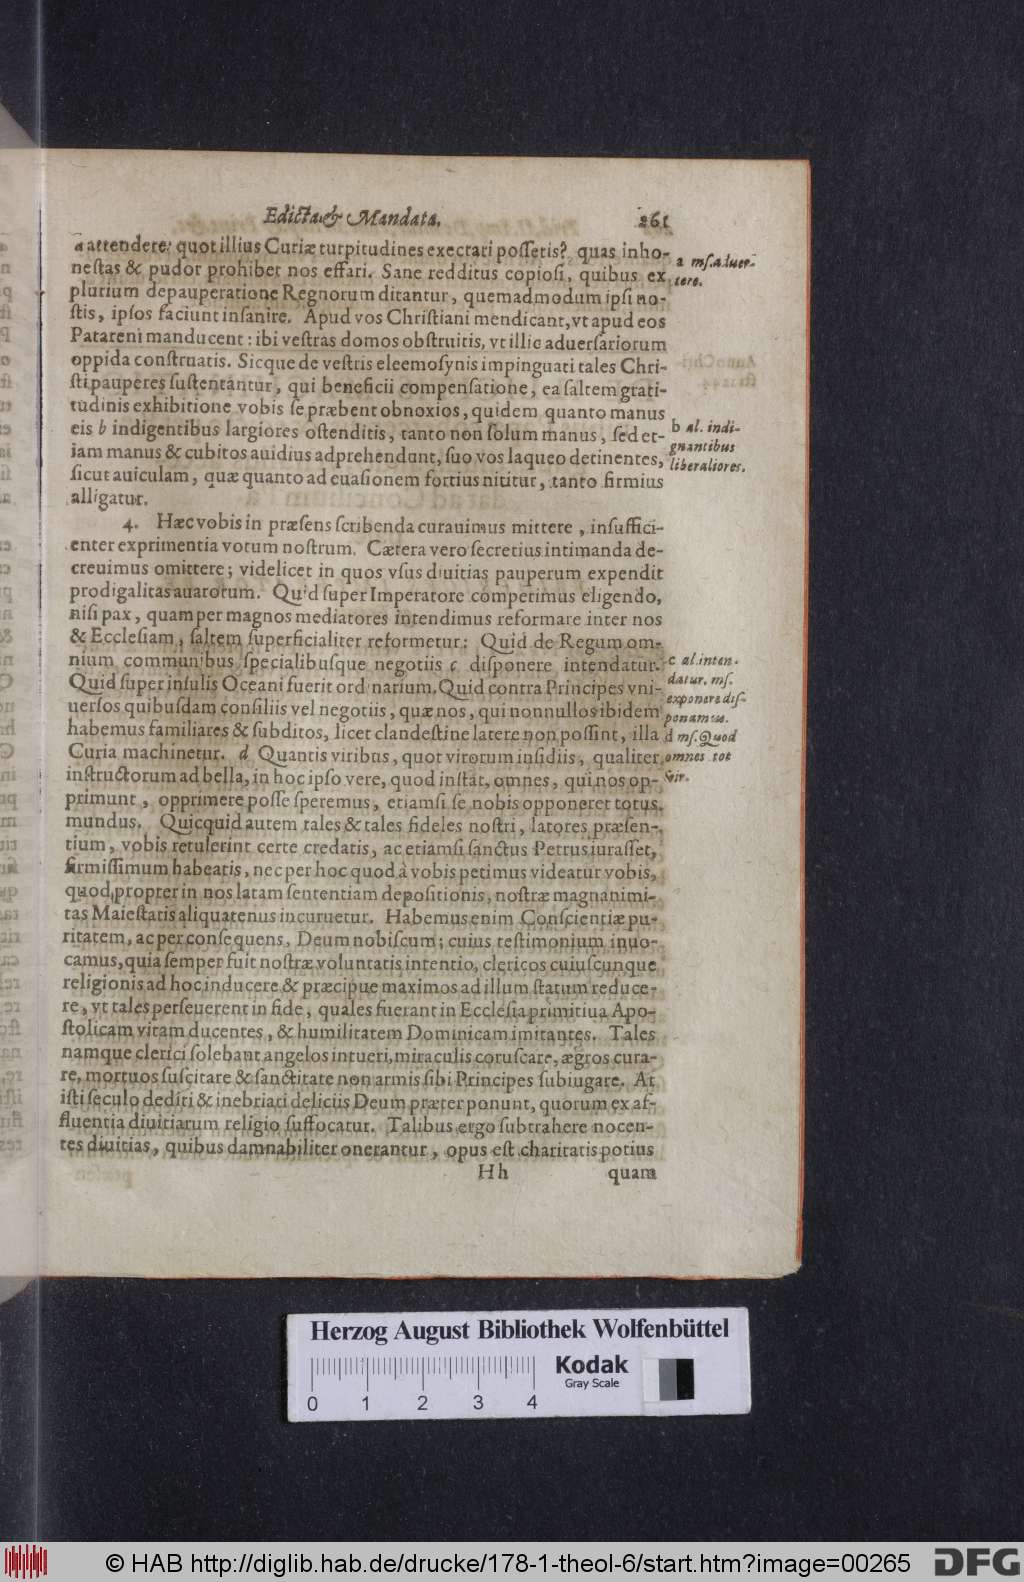 Edicta & Mandata. 261
a attendere: quot illius Curiæ turpitudines execrari possetis? quas inho-
nestas & pudor prohibet nos effari. Sane redditus copiosi, quibus ex
plurium depauperatione Regnorum ditantur, quemadmodum ipsi no-
stis, ipsos faciunt insanire. Apud vos Christiani mendicant, vt apud eos
Patareni manducent: ibi vestras domos obstruitis, vt illic aduersariorum
oppida construatis. Sicque de vestris eleemosynis impinguati tales Chri-
sti pauperes sustentantur, qui beneficii compensatione, ea saltem grati-
tudinis exhibitione vobis se præbent obnoxios, quidem quanto manus
eis b indigentibus largiores ostenditis, tanto non solum manus, sed et-
iam manus & cubitos auidius adprehendunt, suo vos laqueo detinentes,
sicut auiculam, quæ quanto ad euasionem fortius nititur, tanto firmius
alligatur.
4. Hæc vobis in præsens scribenda curauimus mittere, insuffici-
enter exprimentia votum nostrum. Cætera vero secretius intimanda de-
creuimus omittere; videlicet in quos vsus diuitias pauperum expendit
prodigalitas auarorum. Quid super Imperatore competimus eligendo,
nisi pax, quam per magnos mediatores intendimus reformare inter nos
& Ecclesiam, saltem superficialiter reformetur: Quid de Regum om-
nium communibus specialibusque negotiis c disponere intendatur.
Quid super insulis Oceani fuerit ordinarium. Quid contra Principes vni-
uersos quibusdam consiliis vel negotiis, quæ nos, qui nonnullos ibidem
habemus familiares & subditos, licet clandestine latere non possint, illa
Curia machinetur. d Quantis viribus, quot virorum insidiis, qualiter
instructorum ad bella, in hoc ipso vere, quod instat, omnes, qui nos op-
primunt, opprimere posse speremus, etiamsi se nobis opponeret totus
mundus. Quicquid autem tales & tales fideles nostri, latores præsen-
tium, vobis retulerint certe credatis, ac etiamsi sanctus Petrus iurasset,
firmissimum habeatis, nec per hoc quod à vobis petimus videatur vobis,
quod propter in nos latam sententiam depositionis, nostræ magnanimi-
tas Maiestatis aliquatenus incuruetur. Habemus enim Conscientiæ pu-
ritatem, ac per consequens, Deum nobiscum; cuius testimonium inuo-
camus, quia semper fuit nostræ voluntatis intentio, clericos cuiuscunque
religionis ad hoc inducere & præcipue maximos ad illum statum reduce-
re, vt tales perseuerent in fide, quales fuerant in Ecclesia primitiua Apo-
stolicam vitam ducentes, & humilitatem Dominicam imitantes. Tales
namque clerici solebant angelos intueri, miraculis coruscare, ægros cura-
re, mortuos suscitare & sanctitate non armis sibi Principes subiugare. At
isti seculo dediti & inebriati deliciis Deum præter ponunt, quorum ex af-
fluentia diuitiarum religio suffocatur. Talibus ergo subtrahere nocen-
tes diuitias, quibus damnabiliter onerantur, opus est charitatis potius
Hh quam
a ms. aluer-
tere.
b al. indi-
gnantibus
liberaliores.
c al. inten-
datur. ms.
exponere dis-
ponamus.
d ms. Quod
omnes tot
vir.
Herzog August Bibliothek Wolfenbüttel
Kodak
Gray Scale
0 1 2 3 4
© HAB http://diglib.hab.de/drucke/178-1-theol-6/start.htm?image=00265
DFG